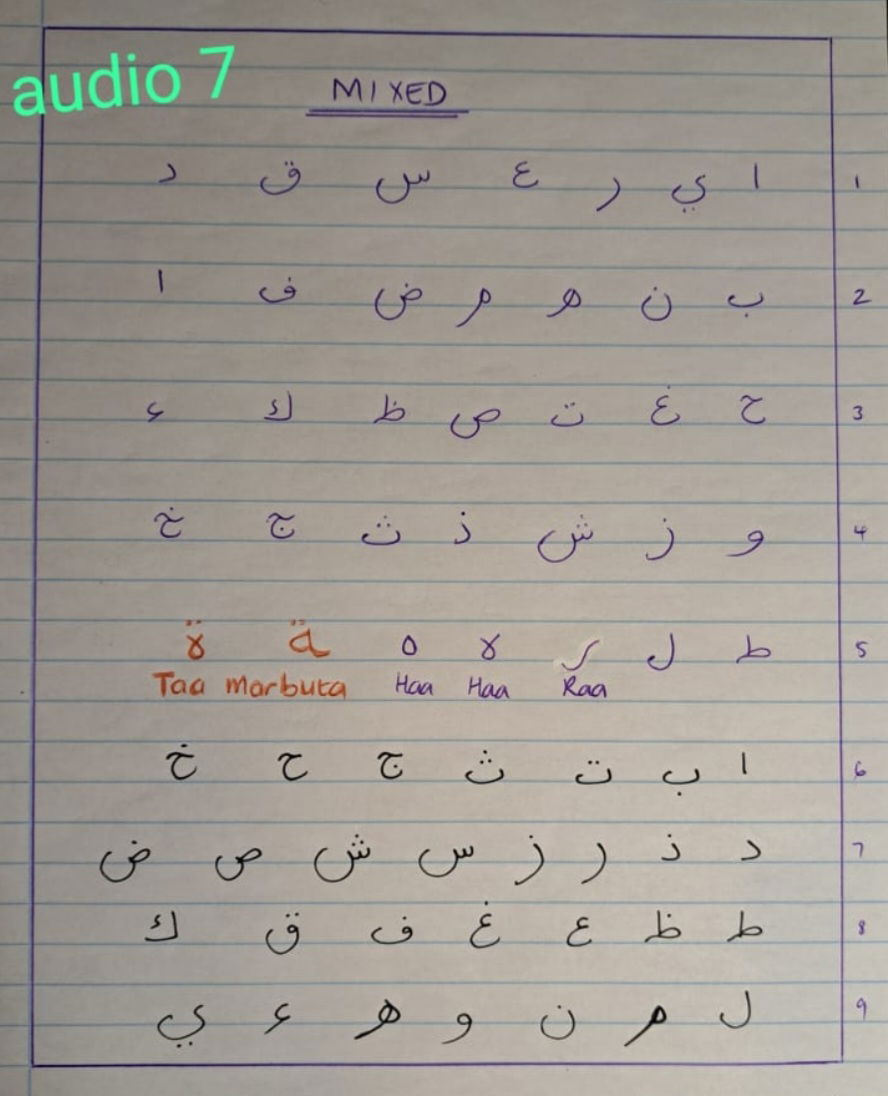 audio 7
MIXED
1 ا ي ر ع س ق د
2 ب ن ه م ض ف ا
3 ح غ ت ص ظ ك ء
4 و ز ش ذ ث ج خ
5 ط ل ر ه ه ة ة
Raa Haa Haa Taa marbuta
6 ا ب ت ث ج ح خ
7 د ذ ر ز س ش ص ض
8 ط ظ ع غ ف ق ك
9 ل م ن و ه ء ي